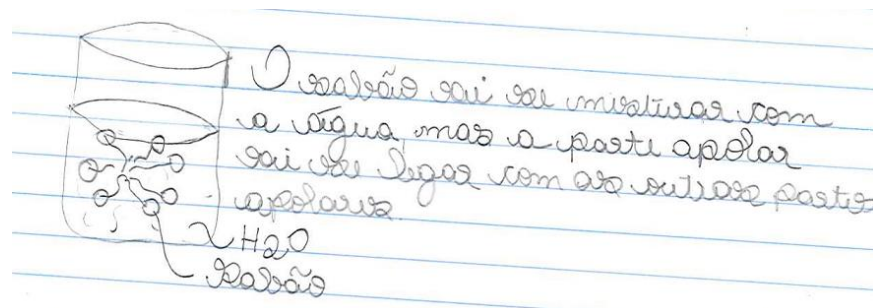 O sabão vai se misturar com
a água mas a parte apolar
vai se ligar com as outras partes
apolares.
H2O
Sabão